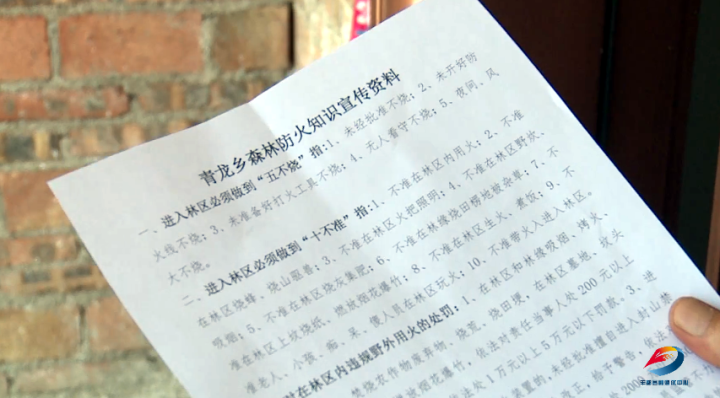 青龙乡森林防火知识宣传资料
一、进入林区必须做到“五不烧”指:1、未经批准不烧;2、未开好防
火线不烧;3、未准备好打火工具不烧;4、无人看守不烧;5、夜间、风
大不烧。
二、进入林区必须做到“十不准”指:1、不准在林区内用火;2、不准
在林区烧蜂、烧山驱兽;3、不准在林区火把照明;4、不准在林区野炊、
吸烟;5、不准在林区烧灰集肥;6、不准在林缘烧田塝地坡杂草;7、不
准在林区上坟烧纸、燃放烟花爆竹;8、不准在林区生火、煮饭;9、不
准老人、小孩、痴、呆、傻人员在林区玩火;10、不准带火入进入林区。
对在林区内违规野外用火的处罚:1、在林区和林缘吸烟、烤火、
焚烧农作物废弃物、烧荒、烧田埂,在林区墓地、坟头
烟花爆竹,依法对责任当事人处200元以上
处1万元以上5万元以下罚款。3、进
装置的,未经批准擅自进入封山禁
改正,给予警告,依法
处200